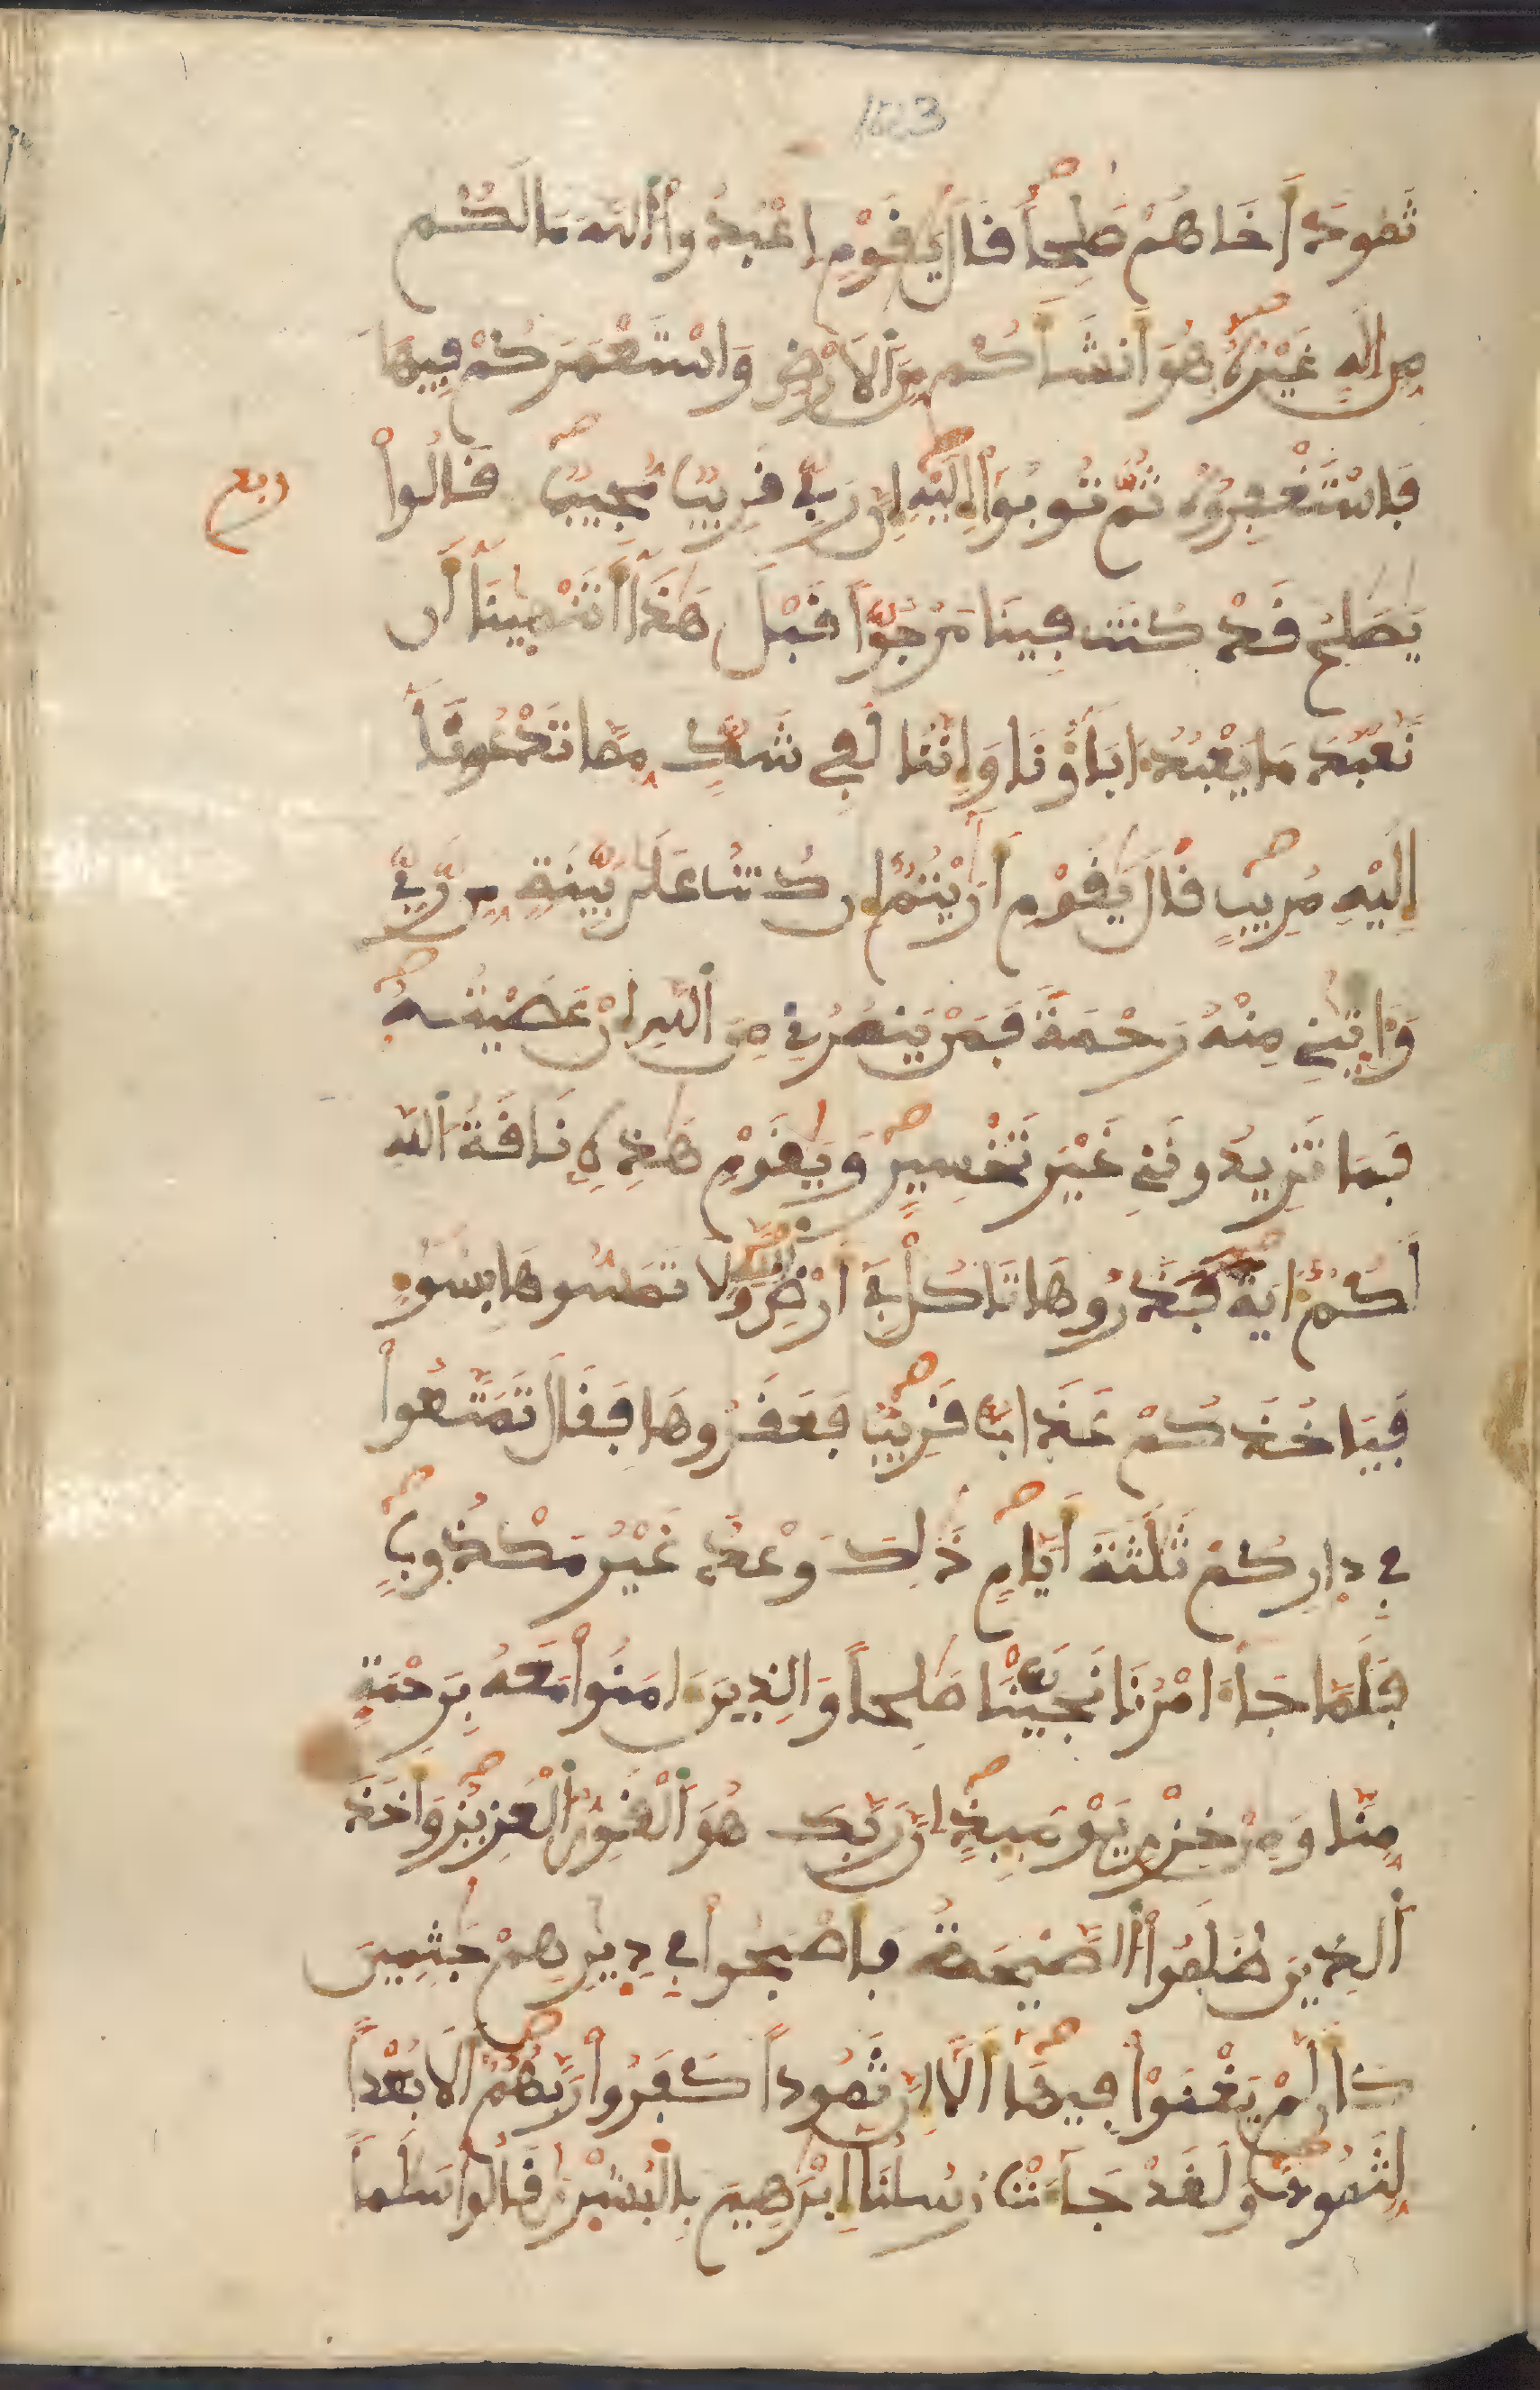 163
ثَمُودَ أَخَاهُمْ صَٰلِحاً قَالَ يَٰقَوْمِ اِعْبُدُواْ اُللَّهَ مَا لَكُم
مِّنِ اِلَٰهٍ غَيْرُهُۥ هُوَ أَنشَأَكُم مِّنَ اَلَارْضِ وَاسْتَعْمَرَكُمْ فِيهَا
فَاسْتَغْفِرُوهُ ثُمَّ تُوبُوٓاْ إِلَيْهِ إِنَّ رَبِّے قَرِيبٌ مُّجِيبٌ قَالُواْ
ربع
يَٰصَٰلِحُ قَدْ كُنتَ فِينَا مَرْجُوّاً قَبْلَ هَٰذَآ أَتَنْهَيٰنَآ أَن
نَّعْبُدَ مَا يَعْبُدُ ءَابَآؤُنَا وَإِنَّنَا لَفِے شَكٍّ مِّمَّا تَدْعُونَآ
إِلَيْهِ مُرِيبٍ قَالَ يَٰقَوْمِ أَرَٰيْتُمُۥٓ إِن كُنتُ عَلَىٰ بَيِّنَةٍ مِّن رَّبِّے
وَءَاتَيٰنِے مِنْهُ رَحْمَةً فَمَنْ يَّنصُرُنِے مِنَ اَللَّهِ إِنْ عَصَيْتُهُۥ
فَمَا تَزِيدُونَنِے غَيْرَ تَخْسِيرٍ وَيَٰقَوْمِ هَٰذِهِۦ نَاقَةُ اُللَّهِ
لَكُمُۥٓ ءَايَةً فَذَرُوهَا تَاكُلْ فِےٓ أَرْضِ اِللَّهِ وَلَا تَمَسُّوهَا بِسُوٓءٍ
فَيَاخُذَكُمْ عَذَابٌ قَرِيبٌ فَعَقَرُوهَا فَقَالَ تَمَتَّعُواْ
فِے دِارِكُمْ ثَلَٰثَةَ أَيَّامٍ ذَٰلِكَ وَعْدٌ غَيْرُ مَكْذُوبٍ
فَلَمَّا جَآءَ امْرُنَا نَجَّيْنَا صَٰلِحاً وَالذِينَ ءَامَنُواْ مَعَهُۥ بِرَحْمَةٍ
مِّنَّا وَمِنْ خِزْيِ يَوْمَئِذٍ إِنَّ رَبَّكَ هُوَ اَلْقَوِيُّ اُلْعَزِيزُ وَأَخَذَ
اَلذِينَ ظَلَمُواْ اُلصَّيْحَةُ فَأَصْبَحُواْ فِے دِيٰرِهِمْ جَٰثِمِينَ
كَأَن لَّمْ يَغْنَوْاْ فِيهَآ أَلَآ إِنَّ ثَمُوداً كَفَرُواْ رَبَّهُمُۥٓ أَلَا بُعْداً
لِّثَمُودَ وَلَقَدْ جَآءَتْ رُسُلُنَآ إِبْرَٰهِيمَ بِالْبُشْرِىٰ قَالُواْ سَلَٰماً